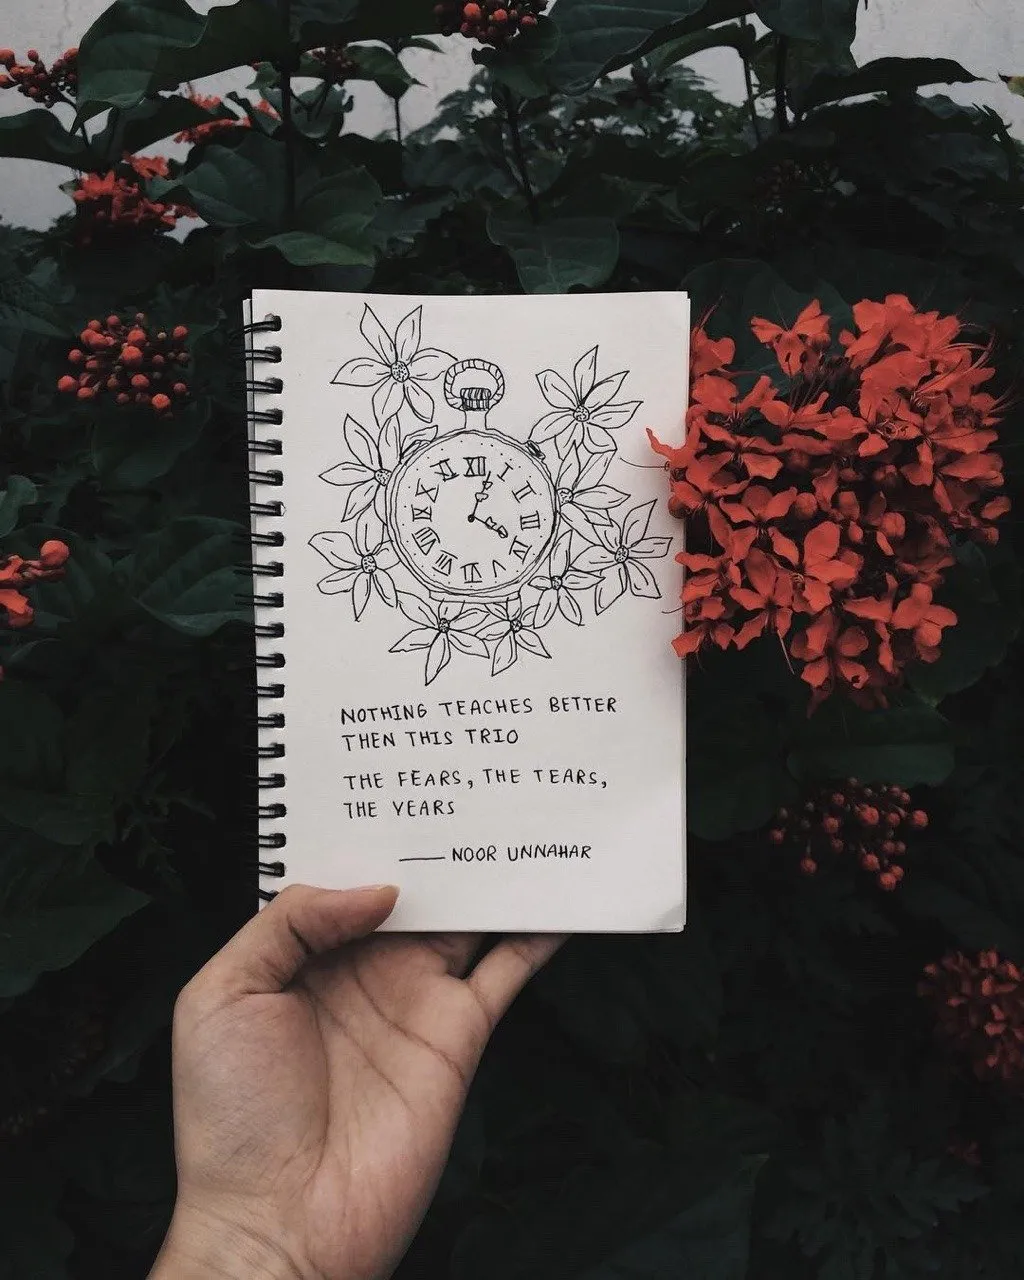 XII
I
II
III
IV
V
VI
VII
VIII
IX
X
XI
NOTHING TEACHES BETTER
THEN THIS TRIO
THE FEARS, THE TEARS,
THE YEARS
NOOR UNNAHAR